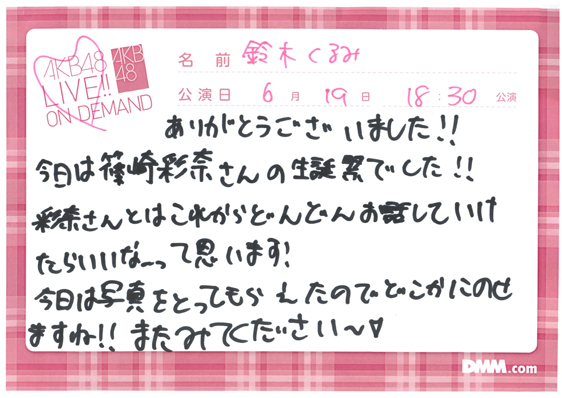 AKB48
LIVE!!
ON DEMAND
AKB
48
名前 鈴木くるみ
公演日 6月19日 18:30 公演
ありがとうございました!!
今日は篠崎彩奈さんの生誕祭でした!!
彩奈さんとはこれからどんどんお話していけ
たらいいな~って思います!
今日は写真をとってもらえたのでどこかにのせ
ますね!! またみてください〜♡
DMM.com